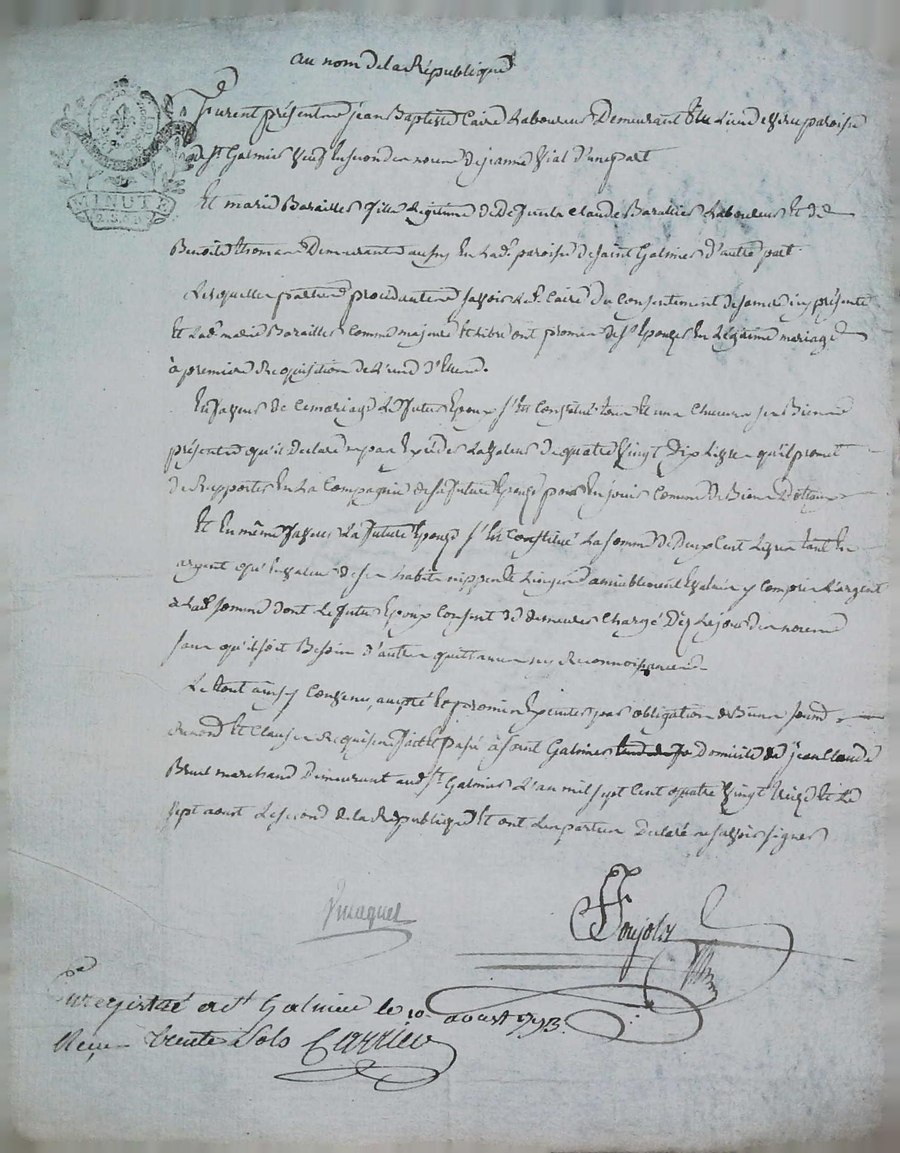 au nom de la République
furent présents jean Baptiste Caire Laboureur Demeurant paroisse
de St Galmier veuf en secondes noces de jeanne vial d'une part
Et marie Barailler fille Legitime de Defunt Claude Barallier Laboureur et de
Benoite thomas Demeurante aussy en lad. paroisse de saint Galmier d'autre part
Lesquelles parties procedantes savoir led. Caire du Consentement de présente
et lad. marie Barailler Comme majeure et libre ont promis de s'Epouzer en Légitime mariage
à première Requisition de L'une d'Elles.
En faveur de Ce mariage Le futur Epoux s'est Constitué tous et uns Chacuns ses Biens
présents qu'il declare n'pas Exceder La valeur de quatre vingt Dix Livres qu'il promet
de Rapporter En La Compagnie de sa future Epouze pour En jouir Comme de Biens Dotaux
Et En même faveur La future Epouze s'est Constitué La somme de Deux Cent Livres tant En
argent qu'En valeur de ses habits nippes et Linges amiablement Evalués y Compris L'argent
à lad. somme dont Le futur Epoux Consent de demeurer Chargé Dez Le jour des noces
sans qu'il soit Besoin d'autres quittances ny Reconnoissances
Le tout ainsy Convenu, accepté et promis Executer par obligation de Biens
et Clauses Requises fait et passé à saint Galmier Domicile de jean Claude
Bruel marchand Demeurant aud. St Galmier L'an mil sept Cent quatre vingt treize et Le
sept aout Le second de la République et ont Les parties Declaré ne savoir signer
MINUTE
Enregistré a St Galmier le 10 aoust 1793.
Reçu trente sols Carrier